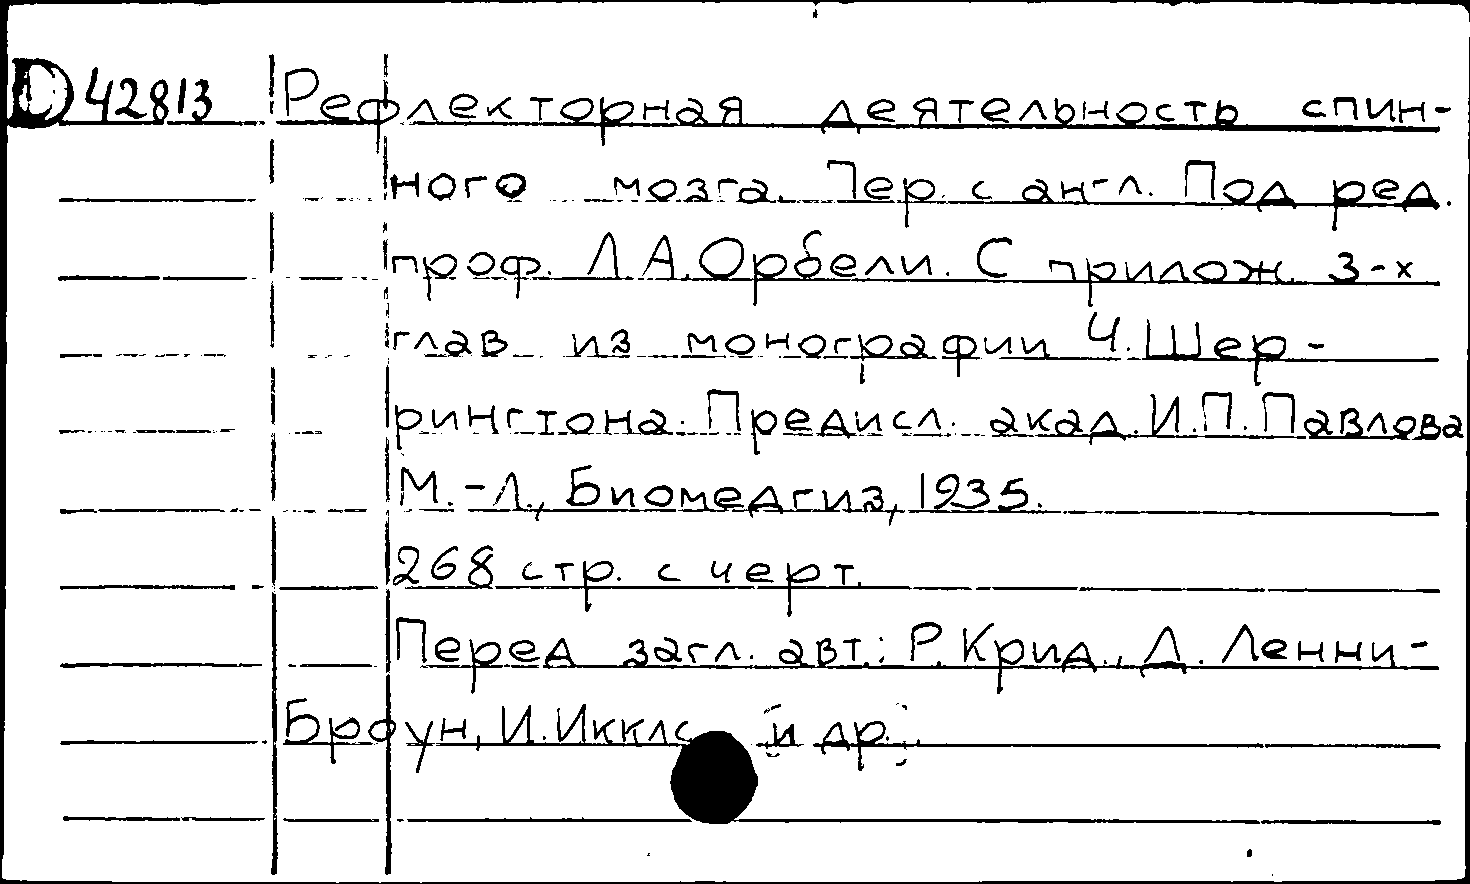 D 42813 Рефлекторная деятельность спин-
ного мозга. Пер. с англ. Под ред.
проф. Л.А.Орбели. С прилож. 3-х
глав из монографии Ч.Шер-
рингтона. Предисл. акад. И.П.Павлова
М.-Л., Биомедгиз, 1935.
268 стр. с черт.
Перед загл. авт.: Р.Крид., Д. Ленни-
Броун, И.Икклс [и др.].